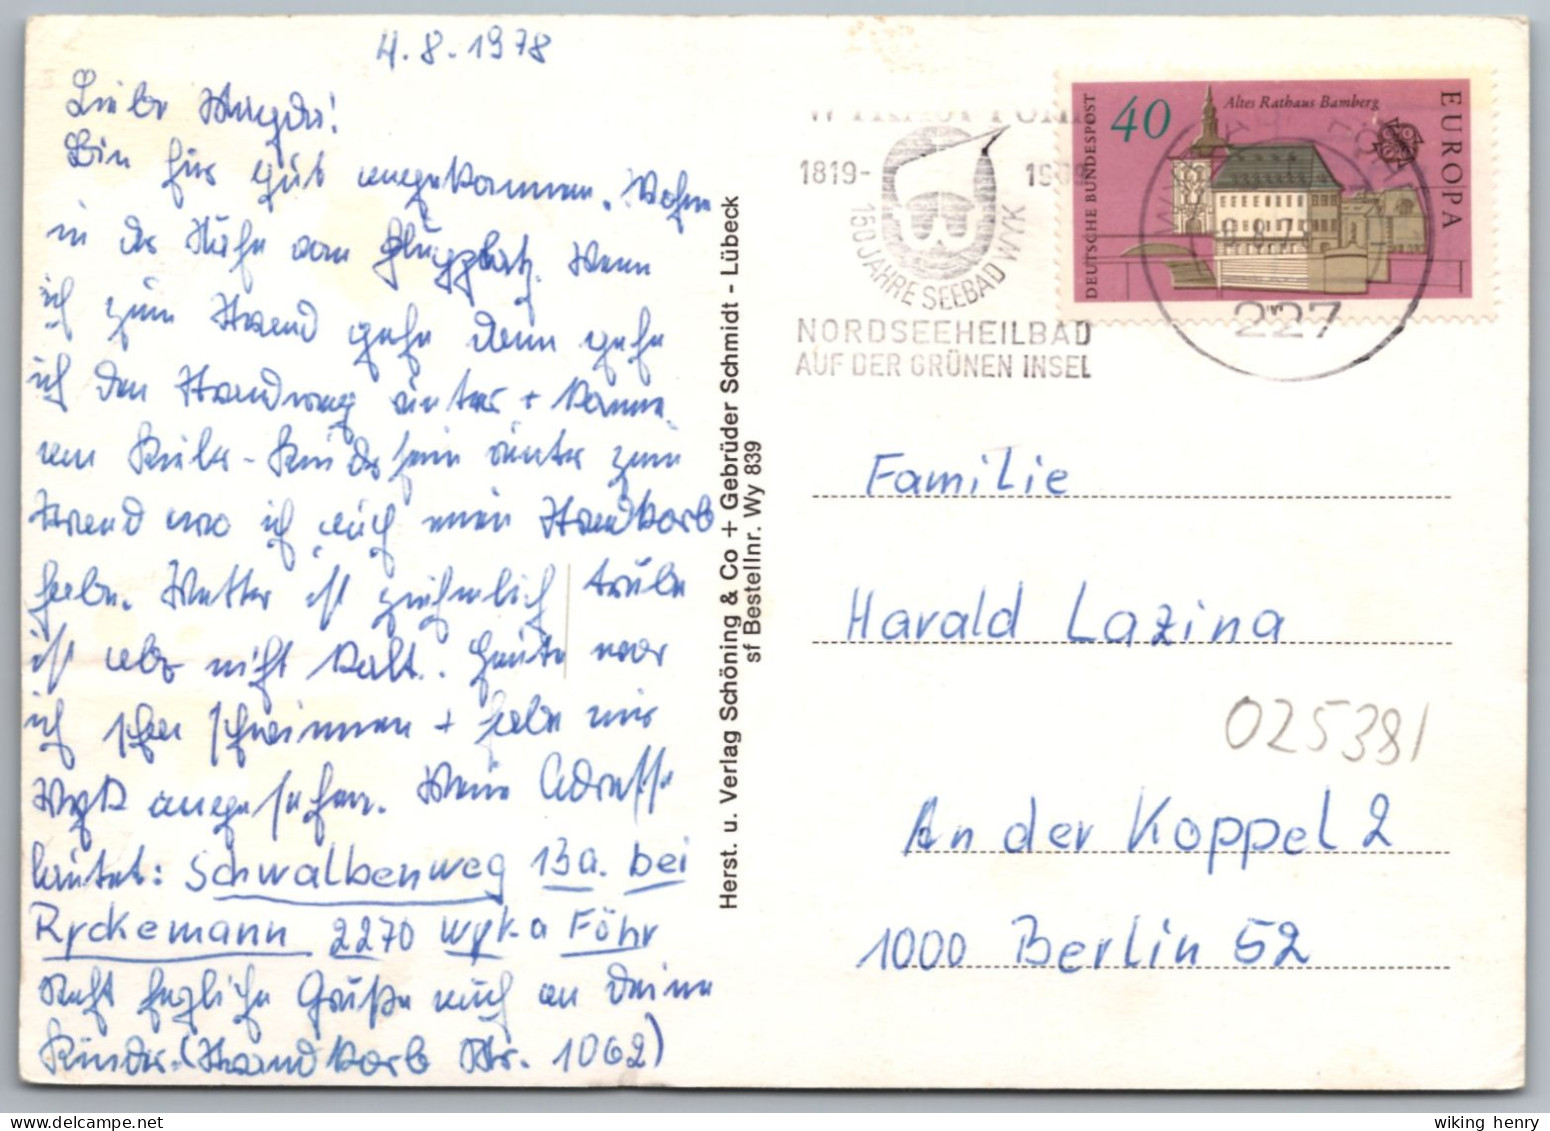 4.8.1978
Liebe Magda!
Bin hier gut angekommen. Wohne
in der Nähe vom Flugplatz. Wenn
ich zum Strand gehe dann gehe
ich den Strandweg runter + komme
am
runter zum
Strand wo ich auch mein Strandkorb
habe. Wetter ist ziehmlich trübe
ist aber nicht kalt. Heute war
ich schon schwimmen + habe mir
Wyk angesehen. Meine Adresse
lautet: Schwalbenweg 13a. bei
Ryckemann 2270 Wyk a Föhr
Recht herzliche Grüße auch an Deine
Kinder. (Strandkorb Nr. 1062)
Herst. u. Verlag Schöning & Co + Gebrüder Schmidt - Lübeck
sf Bestellnr. Wy 839
1819-
150 JAHRE SEEBAD WYK
NORDSEEHEILBAD
AUF DER GRÜNEN INSEL
DEUTSCHE BUNDESPOST
40
Altes Rathaus Bamberg
EUROPA
227
Familie
Harald Lazina
025381
An der Koppel 2
1000 Berlin 52
wiking henry